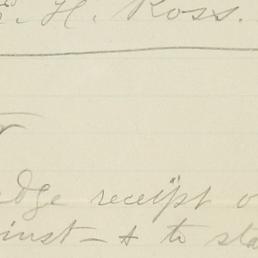 . H. Ross.
edge receipt o
inst - & to sta